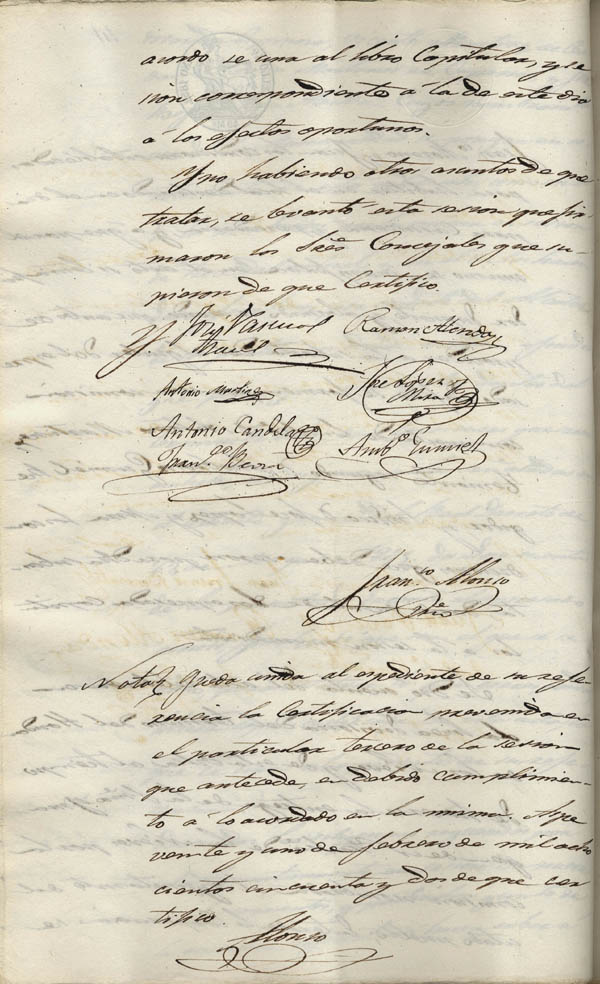 acordo se una al libro Capitular, y se
sion correspondiente á la de este dia
á los efectos oportunos.
Y no habiendo otros asuntos de que
tratar, se levantó esta sesion que fir-
maron los Sres Concejales que su-
pieron de que Certifico.
José Pascual
Ramon
Antonio Martinez
Jse Lopez
Mira
Antonio Candela
Fran.co
Franco Alonso
Srio
Nota Queda unida al espediente de su refe-
rencia la Certificacion prevenida en
el particular tercero de la sesion
que antecede, en debido cumplimien-
to á lo acordado en la misma. Aspe
veinte y uno de febrero de mil ocho
cientos cincuenta y dos de que cer-
tifico.
Alonso